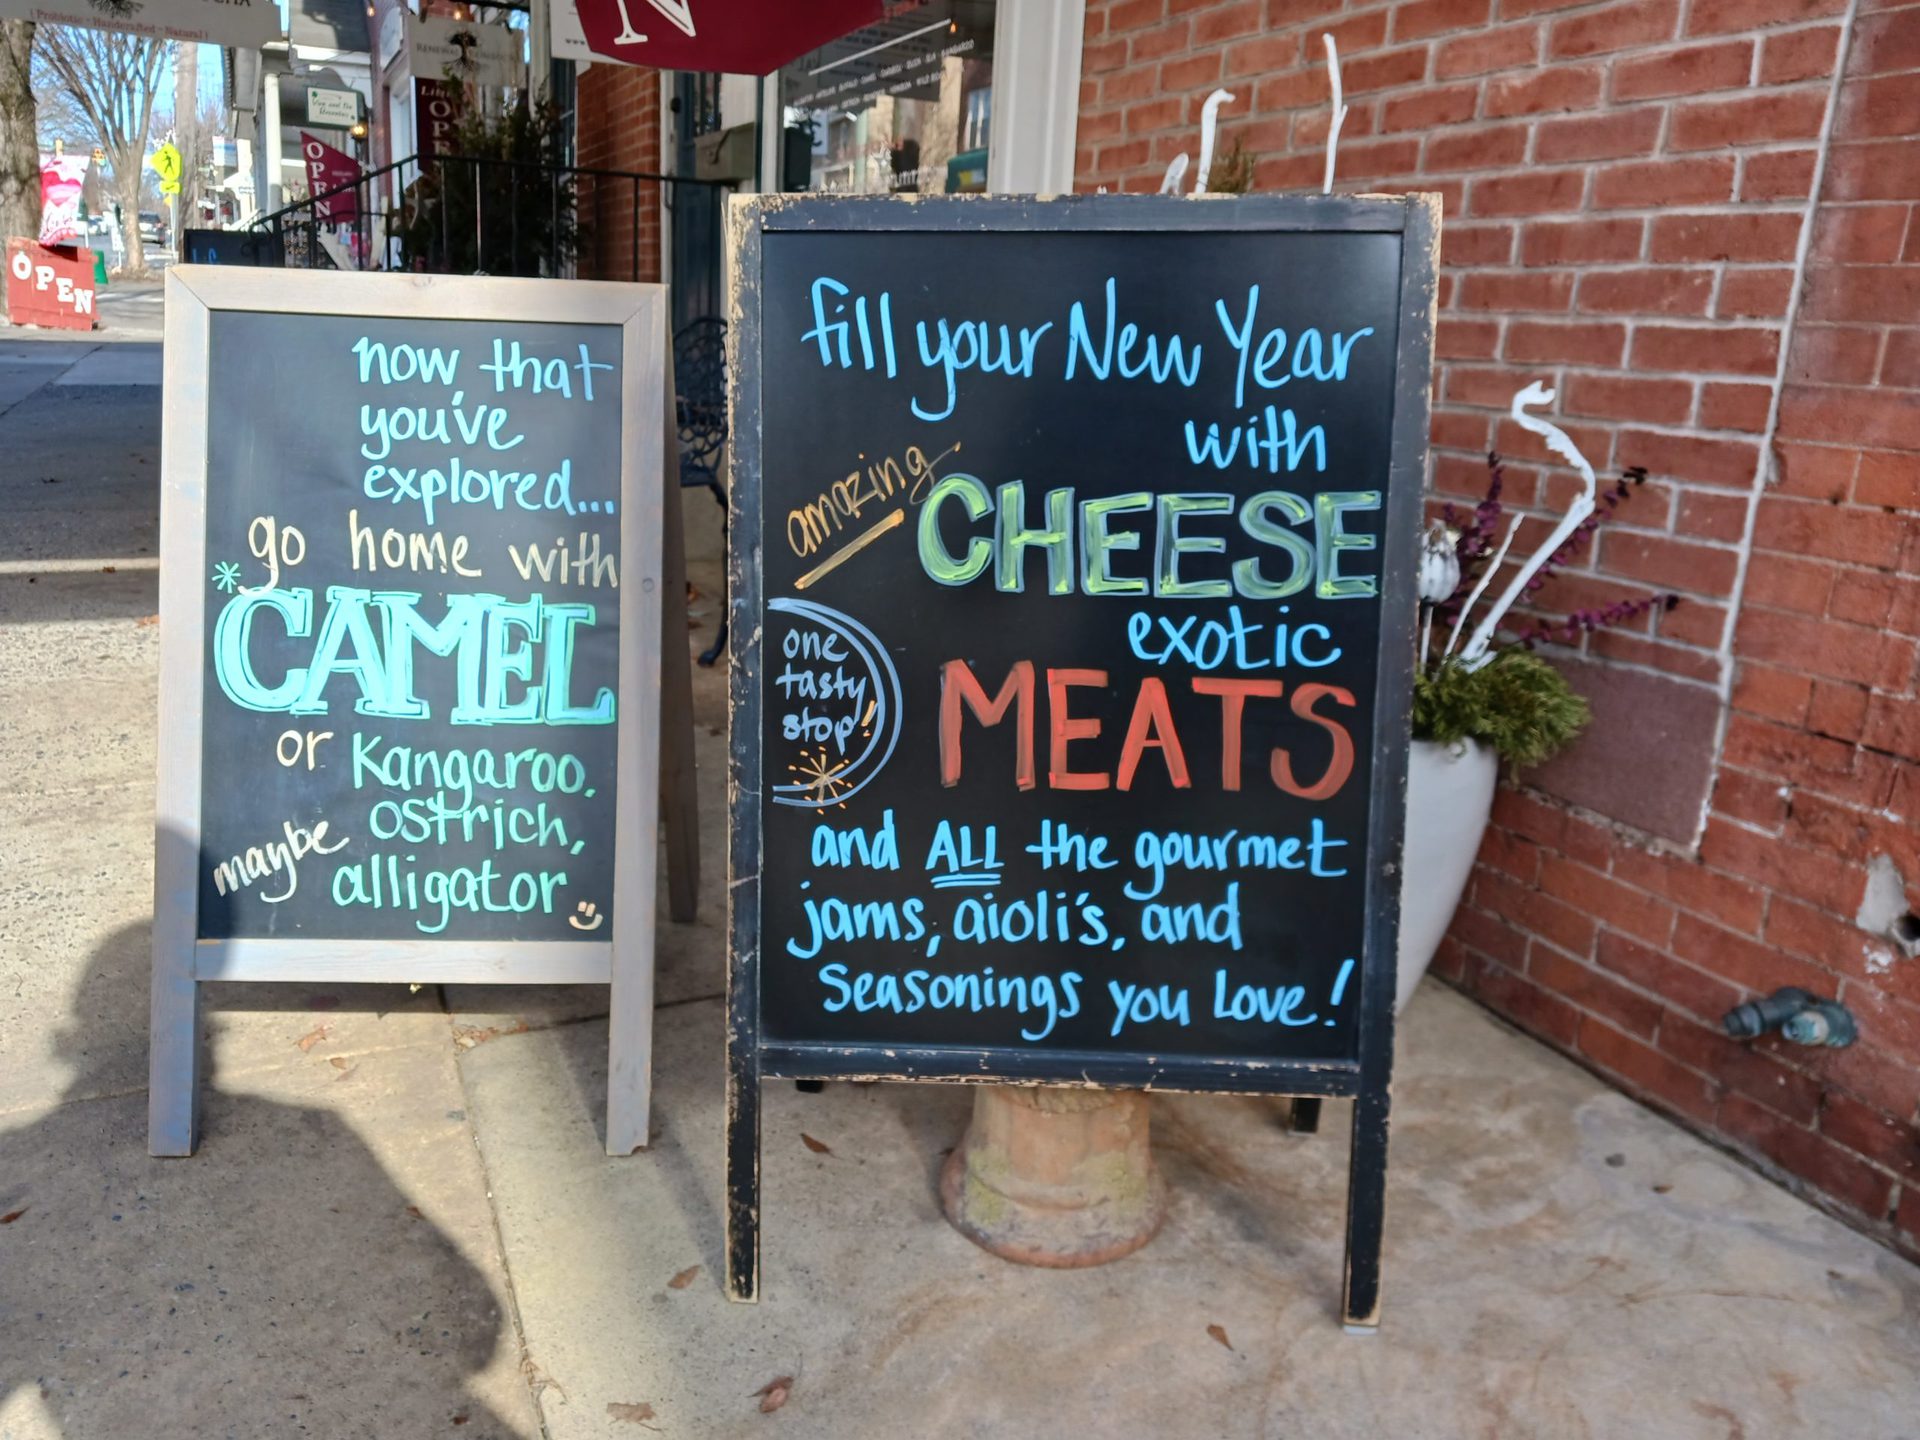 { Probiotic - Handcrafted - Natural }
OPEN
OPEN
now that
you've
explored...
go home with
*CAMEL
or Kangaroo,
ostrich,
maybe alligator
fill your New Year
with
amazing CHEESE
exotic
MEATS
one
tasty
stop!
and ALL the gourmet
jams, aioli's, and
seasonings you love!